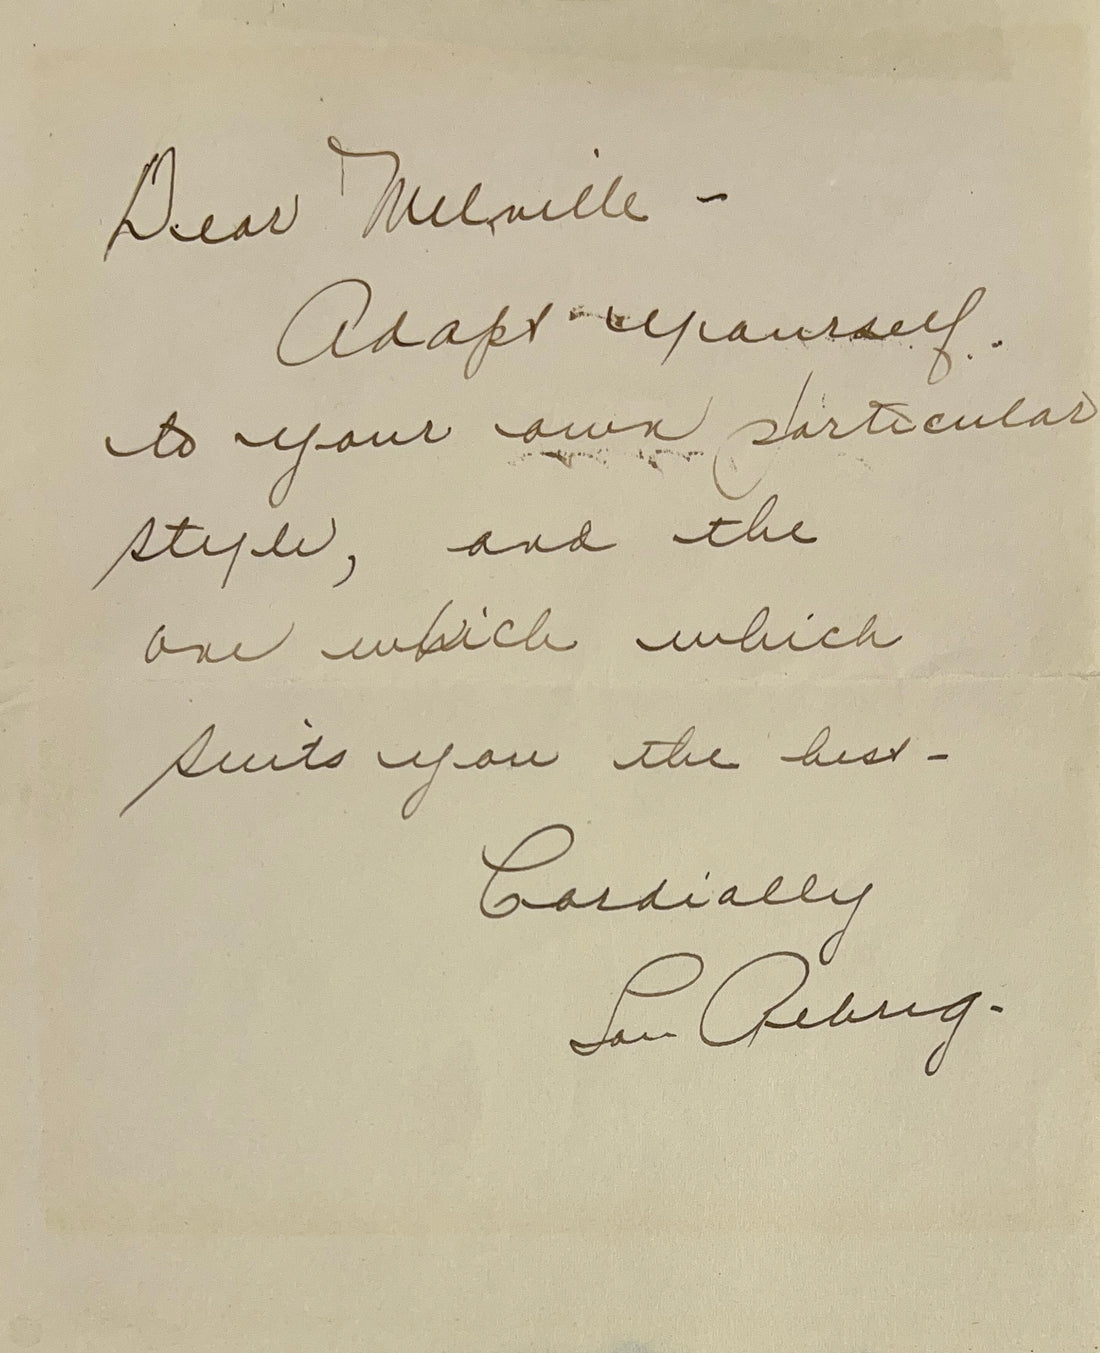 Dear Melville -
Adapt yourself.
to your own particular
style, and the
one which which
suits you the best -
Cordially
Lou Gehrig.